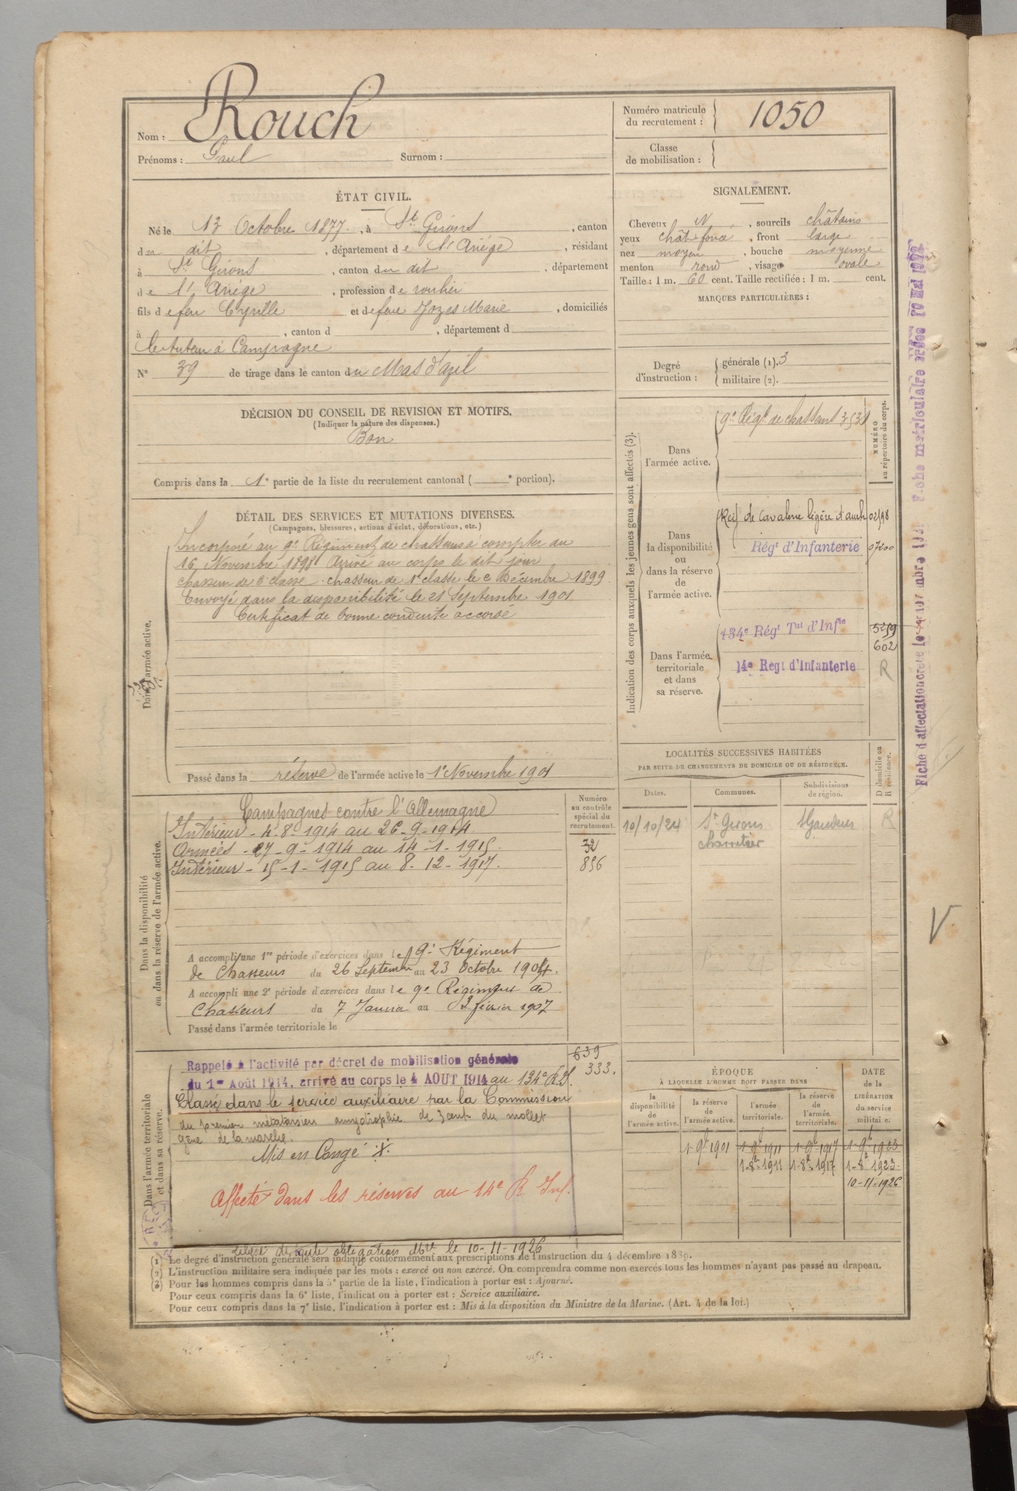 Nom : Rouch
Prénoms : Paul Surnom :
Numéro matricule du recrutement : 1050
Classe de mobilisation :
ÉTAT CIVIL.
Né le 13 Octobre 1877, à St Girons, canton
du dit, département de l'Ariège, résidant
à St Girons, canton du dit, département
de l'Ariège, profession de roulier
fils de feu Cyrille et de feue Jozes Marie, domiciliés
à , canton d , département d
le tuteur à Campagne
N° 39 de tirage dans le canton du Mas d'azil
SIGNALEMENT.
Cheveux N, sourcils châtains
yeux chât foncé, front large
nez moyen, bouche moyenne
menton rond, visage ovale
Taille : 1 m. 60 cent. Taille rectifiée : 1 m. cent.
MARQUES PARTICULIÈRES :
Degré d'instruction : générale (1). 3
militaire (2).
DÉCISION DU CONSEIL DE REVISION ET MOTIFS.
(Indiquer la nature des dispenses.)
Bon
Compris dans la 1e partie de la liste du recrutement cantonal ( e portion).
DÉTAIL DES SERVICES ET MUTATIONS DIVERSES.
(Campagnes, blessures, actions d'éclat, décorations, etc.)
Dans l'armée active.
Incorporé au 9e Régiment de chasseurs à compter du
16 Novembre 1898 Arrivé au corps le dit jour
chasseur de 2e classe. chasseur de 1e classe le 2 Décembre 1899
Envoyé dans la disponibilité le 21 Septembre 1901
Certificat de bonne conduite accordé
Passé dans la réserve de l'armée active le 1er Novembre 1901
Indication des corps auxquels les jeunes gens sont affectés (3).
NUMÉRO au répertoire du corps.
Dans l'armée active.
9e Régt de chasseurs 3531
Dans la disponibilité ou dans la réserve de l'armée active.
de Cavalerie légère
Régt d'Infanterie
Dans l'armée territoriale et dans sa réserve.
134e Régt Tal d'Infie
602
14e Regt d'Infanterie R
LOCALITÉS SUCCESSIVES HABITÉES
PAR SUITE DE CHANGEMENTS DE DOMICILE OU DE RÉSIDENCE.
Dates. Communes. Subdivisions de région. D domicile ou R résidence.
10/10/24 St Girons St Gaudens R
Dans la disponibilité ou dans la réserve de l'armée active.
Numéro au contrôle spécial du recrutement.
Campagnes contre l'Allemagne
Intérieur - 4-8-1914 au 26-9-1914
Armées - 27-9-1914 au 14-1-1915
Intérieur - 15-1-1915 au 8-12-1917.
32
896
A accompli une 1re période d'exercices dans le 9e Régiment
de Chasseurs du 26 Septembre au 23 Octobre 1904.
A accompli une 2e période d'exercices dans le 9e Régiment de
Chasseurs du 7 Janvier au 2 février 1907
Passé dans l'armée territoriale le
Dans l'armée territoriale et dans sa réserve.
639
333.
Rappelé à l'activité par décret de mobilisation générale
du 1er Août 1914. arrivé au corps le 4 AOUT 1914 au 134e R.I.
Classé dans le service auxiliaire par la Commission
du premier métatarsien amyotrophie de 3 cent. du mollet
gêne de la marche.
Mis en Congé
Affecté dans les réserves au 14e R Inf.
Libéré de toute obligation Mre le 10-11-1926
ÉPOQUE
À LAQUELLE L'HOMME DOIT PASSER DANS
la disponibilité de l'armée active.
la réserve de l'armée active.
l'armée territoriale.
la réserve de l'armée territoriale.
DATE de la LIBÉRATION du service militaire.
1-9b 1901 1-9b 1911 1-9b 1917 1-9b 1923
1-8b 1911 1-8b 1917 1-8b 1923
10-11-1926
(1) Le degré d'instruction générale sera indiqué conformément aux prescriptions de l'instruction du 4 décembre 1889.
(2) L'instruction militaire sera indiquée par les mots : exercé ou non exercé. On comprendra comme non exercés tous les hommes n'ayant pas passé au drapeau.
(3) Pour les hommes compris dans la 5e partie de la liste, l'indication à porter est : Ajourné.
Pour ceux compris dans la 6e liste, l'indication à porter est : Service auxiliaire.
Pour ceux compris dans la 7e liste, l'indication à porter est : Mis à la disposition du Ministre de la Marine. (Art. 4 de la loi.)
V.